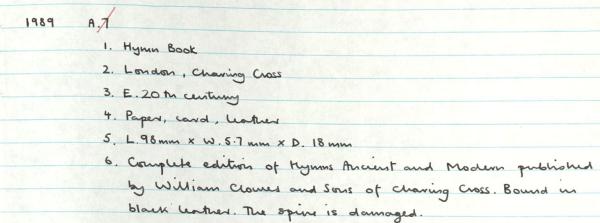 1989 A.7
1. Hymn Book
2. London, Charing Cross
3. E. 20th century
4. Paper, card, leather
5. L. 98mm x W. 5.7mm x D. 18mm
6. Complete edition of Hymns Ancient and Modern published
by William Clowes and Sons of Charing Cross. Bound in
black leather. The spine is damaged.